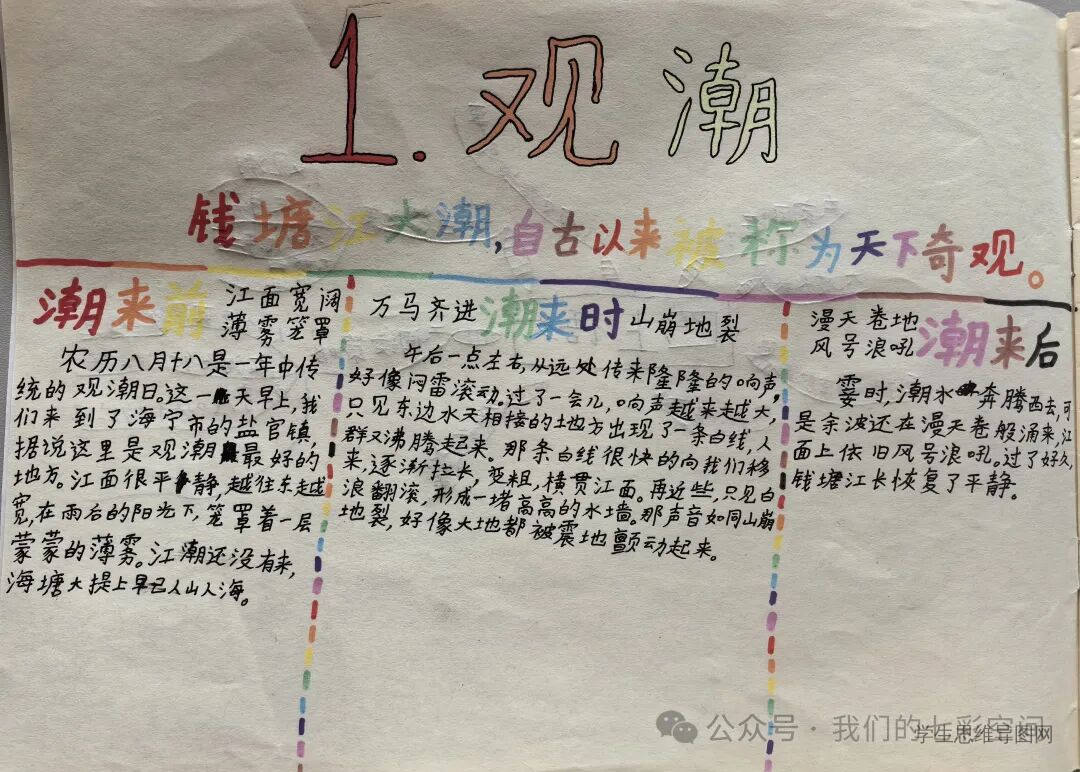 1.观潮
钱塘江大潮,自古以来被称为天下奇观。
潮来前
江面宽阔
薄雾笼罩
农历八月十八是一年中传
统的观潮日。这一天早上,我
们来到了海宁市的盐官镇,
据说这里是观潮最好的
地方。江面很平静,越往东越
宽,在雨后的阳光下,笼罩着一层
蒙蒙的薄雾。江潮还没有来,
海塘大提上早已人山人海。
万马齐进
潮来时
山崩地裂
午后一点左右,从远处传来隆隆的响声,
好像闷雷滚动。过了一会儿,响声越来越大,
只见东边水天相接的地方出现了一条白线,人
群又沸腾起来。那条白线很快的向我们移
来,逐渐拉长,变粗,横贯江面。再近些,只见白
浪翻滚,形成一堵高高的水墙。那声音如同山崩
地裂,好像大地都被震地颤动起来。
漫天卷地
风号浪吼
潮来后
霎时,潮水奔腾西去,可
是余波还在漫天卷般涌来,江
面上依旧风号浪吼。过了好久,
钱塘江长恢复了平静。
公众号·我们的七彩空间
学生思维导图网